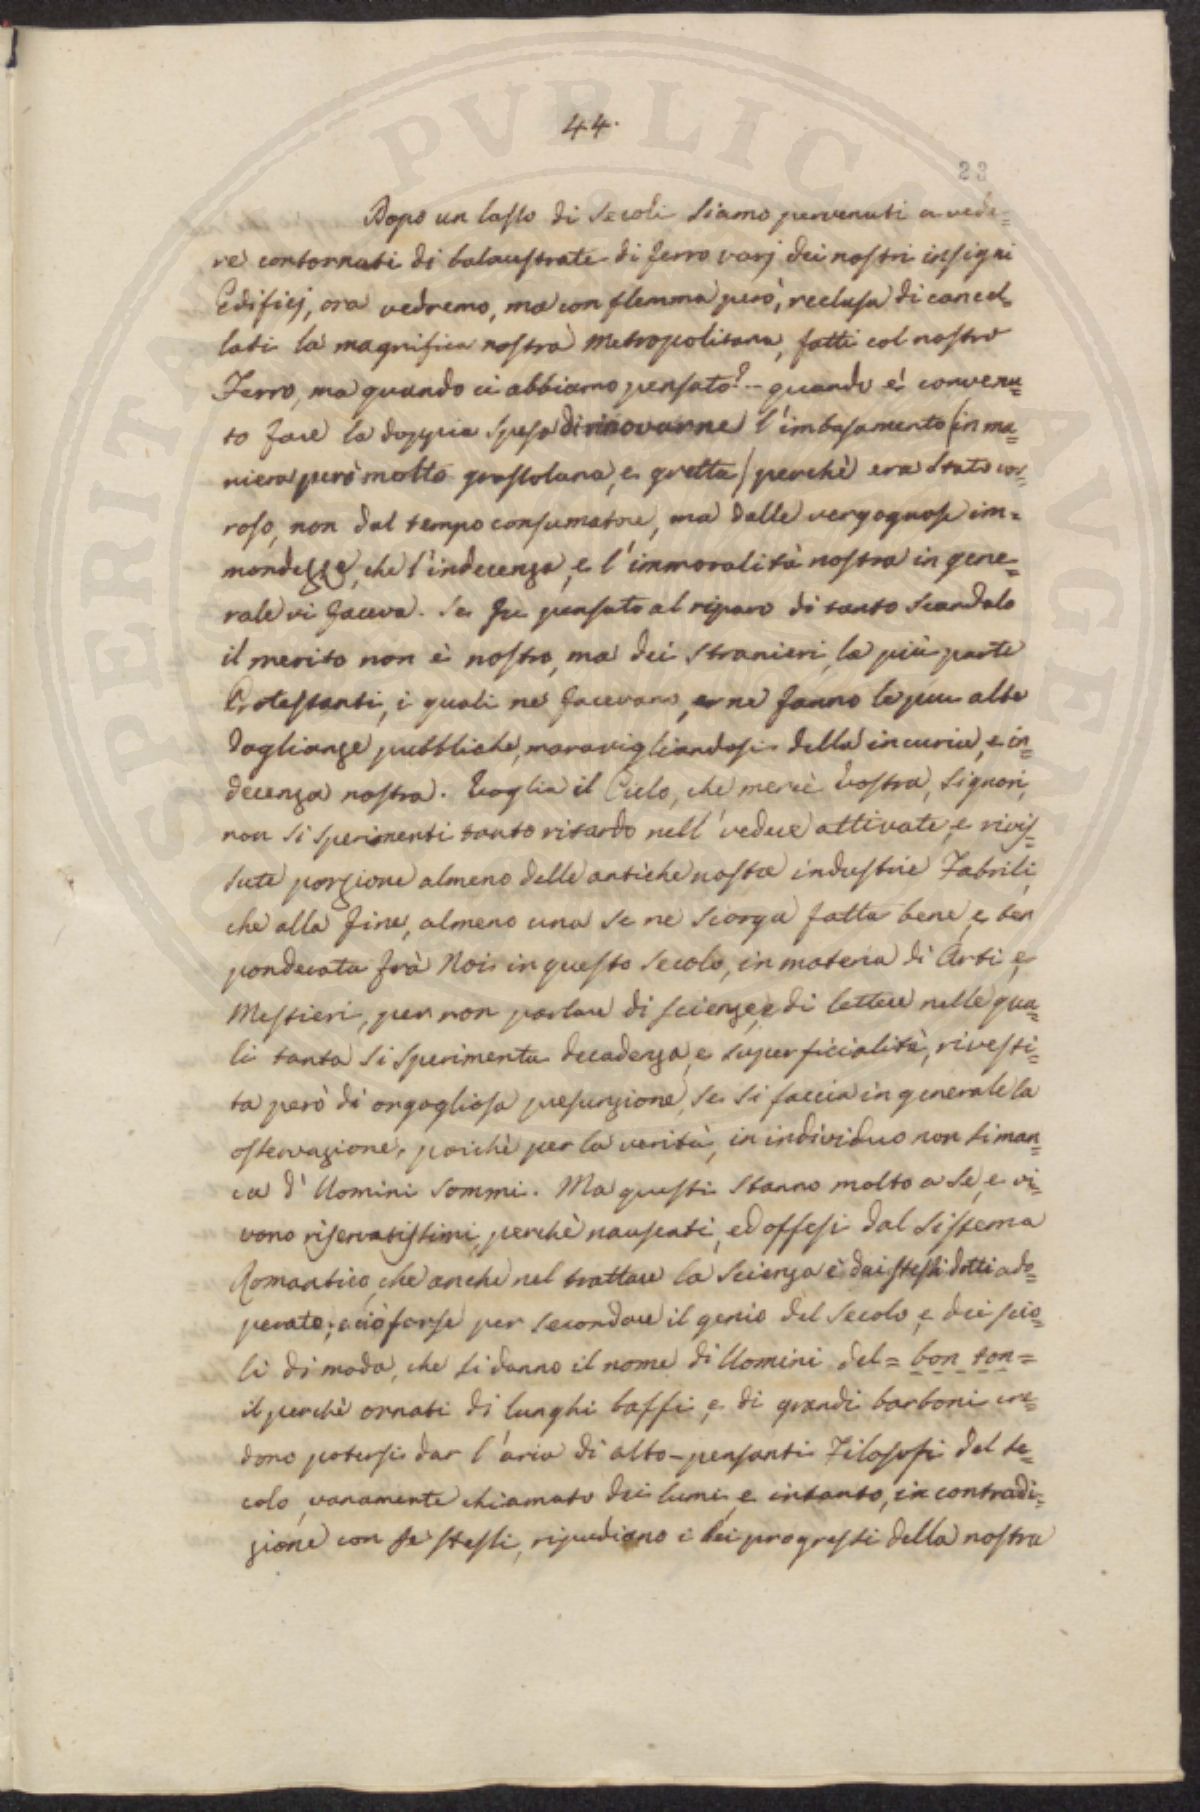 44.
23
Dopo un lasso di Secoli siamo pervenuti a vede=
re contornati di balaustrate di ferro varj dei nostri insigni
Edificj, ora vedremo, ma con flemma però, reclusa di cancel=
lati la magnifica nostra Metropolitana, fatti col nostro
Ferro, ma quando ci abbiamo pensato? - quando è convenu=
to fare la doppia spesa di rinovarne l'imbasamento (in ma=
niera però molto grossolana, e gretta) perchè era stato cor=
roso, non dal tempo consumatore, ma dalle vergognose im=
mondezze, che l'indecenza, e l'immoralità nostra in gene=
rale vi faceva. Se fu pensato al riparo di tanto Scandalo
il merito non è nostro, ma dei Stranieri, la più parte
Protestanti, i quali ne facevano, e ne fanno le più alte
doglianze pubbliche, maravigliandosi della incuria, e in=
decenza nostra. Voglia il Cielo, che mercè Vostra, Signori,
non si sperimenti tanto ritardo nell'vedere attivate, e rivis=
sute porzione almeno delle antiche nostre industrie Fabrili,
che alla fine, almeno una se ne scorga fatta bene, e ben
ponderata frà Noi in questo Secolo, in materia di Arti e
Mestieri, per non parlare di scienze, e di lettere nelle qua=
li tanta si sperimenta decadenza, e superficialità, rivesti=
ta però di orgogliosa presunzione, se si faccia in generale la
osservazione, poichè per la verità, in individuo non si man=
ca d'Uomini sommi. Ma questi stanno molto a se, e vi=
vono riservatissimi, perchè nauseati, ed offesi dal Sistema
Romantico, che anche nel trattare la Scienza è dai stessi dotti ado=
perato; e ciò forse per secondare il genio del Secolo, e dei scio=
li di moda, che si danno il nome di Uomini del = bon ton =
il perchè ornati di lunghi baffi, e di grandi barboni cre=
dono potersi dar l'aria di alto-pensanti Filosofi del se=
colo, vanamente chiamato dei lumi, e intanto, in contradi=
zione con se stessi, ripudiano i bei progressi della nostra
PERITAS PVBLICA AVGET